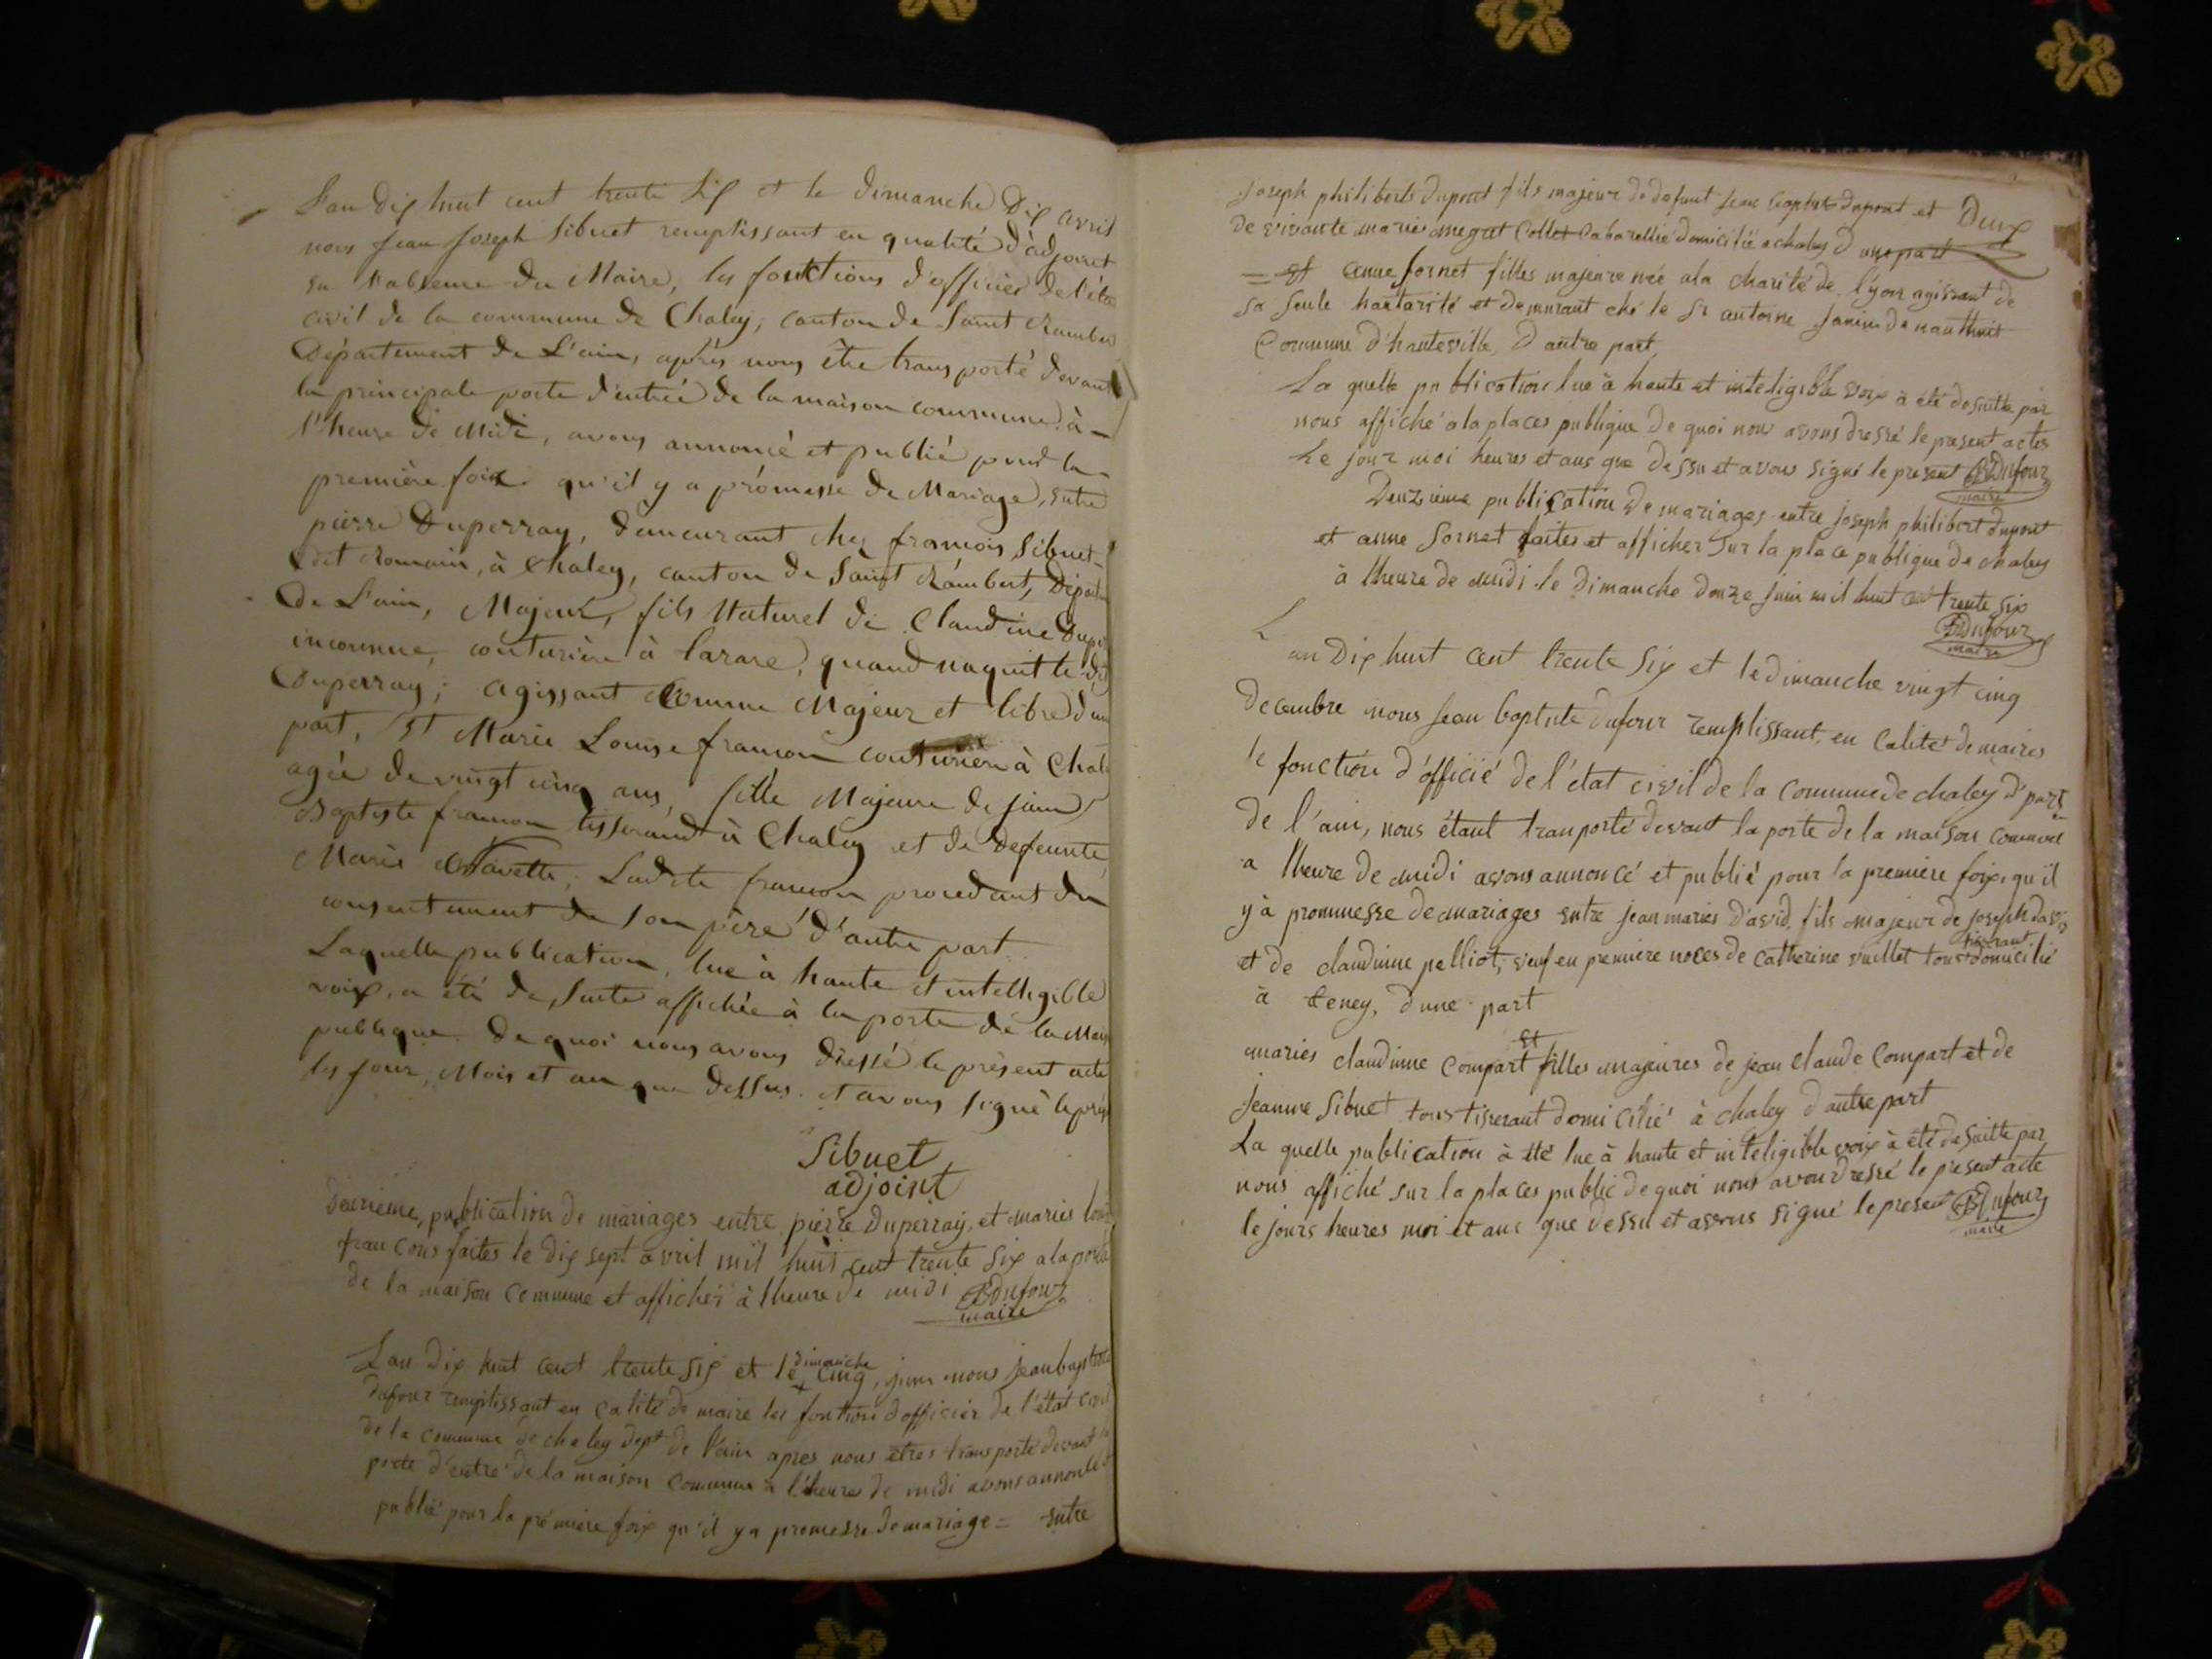 L'an dix huit cent trente six et le dimanche dix avril
nous Jean Joseph Sibuet remplissant en qualité d'adjoint
en l'absence du Maire, les fonctions d'officier de l'état
civil de la commune de Chaley, canton de Saint Rambert
Département de L'ain, après nous être transporté devant
la principale porte d'entrée de la maison commune à
l'heure de Midi, avons annoncé et publié pour la
première foix qu'il y a promesse de Mariage, entre
pierre Duperray, demeurant chez francois Sibuet
dit Romain, à Chaley, canton de Saint Rambert, Départ
De L'ain, Majeur, fils Naturel de Claudine Dupe
inconnue, couturière à tarare, quand naquit le dit
Duperray; agissant comme Majeur et libre d'une
part, Et Marie Louise francon couturière à Chaley
agée de vingt cinq ans, fille Majeure de jean
Baptiste francon tisserand à Chaley et de defeunte
Marie Ladite francon procedant du
consentement de son père d'autre part
Laquelle publication, lue à haute et intelligible
voix, a été de suite affichée à la porte de la Mais
publique De quoi nous avons dressé le présent acte
les jour, Mois et an que dessus et avons signé le prés
Sibuet
adjoint
deuxieme publication de mariages entre pierre Duperray et maries loui
francons faites le dix sept avril mil huit cent trente six a la porte
de la maison commune et affichés à lheure de midi Dufour
maire
L'an dix huit cent trente six et le dimanche cinq, juin nous jean baptiste
dufour remplissant en calité de maire les fontions d'officier de l'état civil
de la commune de chaley dept de l'ain apres nous etres transporté devant la
porte d'entré de la maison commune a l'heures de midi avons annoncé et
publié pour la premiere foix qu'il y a promesse de mariage = entre
Joseph philiberts dupont fils majeur de defunt jean baptiste dupont et Deux
de vivante maries Collet Cabarellié domicilié a chaley d une part
= et anne fornet filles majeure née ala charité de l'yon agissant de
sa seule hautarité et demurant ché le sr antoine Janin de nanthuit
Commune d'hauteville, D'autre part
La quelle publication lue à haute et inteligible voix à été de suitte par
nous affiché a la places publique De quoi nous avons dressé le present actes
Le jour moi heures et ans que dessu et avons signé le present Dufour
maire
Deuzième publication de mariages entre joseph philibert dupont
et anne Sornet faites et afficher sur la place publique de chaley
à lheure de midi le dimanche douze juin mil huit cent trente six
Dufour
maire
L an dix huit cent trente six et le dimanche vingt cinq
decembre nous jean baptiste dufour remplissant en calité de maires
le fonction d'officié de l'état civil de la commune de chaley d'part
de l'ain, nous étant tranporté devant la porte de la maison commune
a lheure de midi avons annoncé et publié pour la première foix, qu'il
y à prommesse de mariages entre jean maries david, fils majeur de joseph david
et de claudinne pelliot, veuf en première noces de catherine vuillet tous tiserant domicilié
à teney, d une part
et
maries claudinne Compart filles majeures de jean claude Compart et de
jeanne Sibuet tous tiserant domicilié à chaley d autre part
La quelle publication à été lue à haute et inteligible voix à été de suitte par
nous affiché sur la places public de quoi nous avon dressé le present acte
le jours heures moi et ans que dessu et avons signé le present Dufour
maire